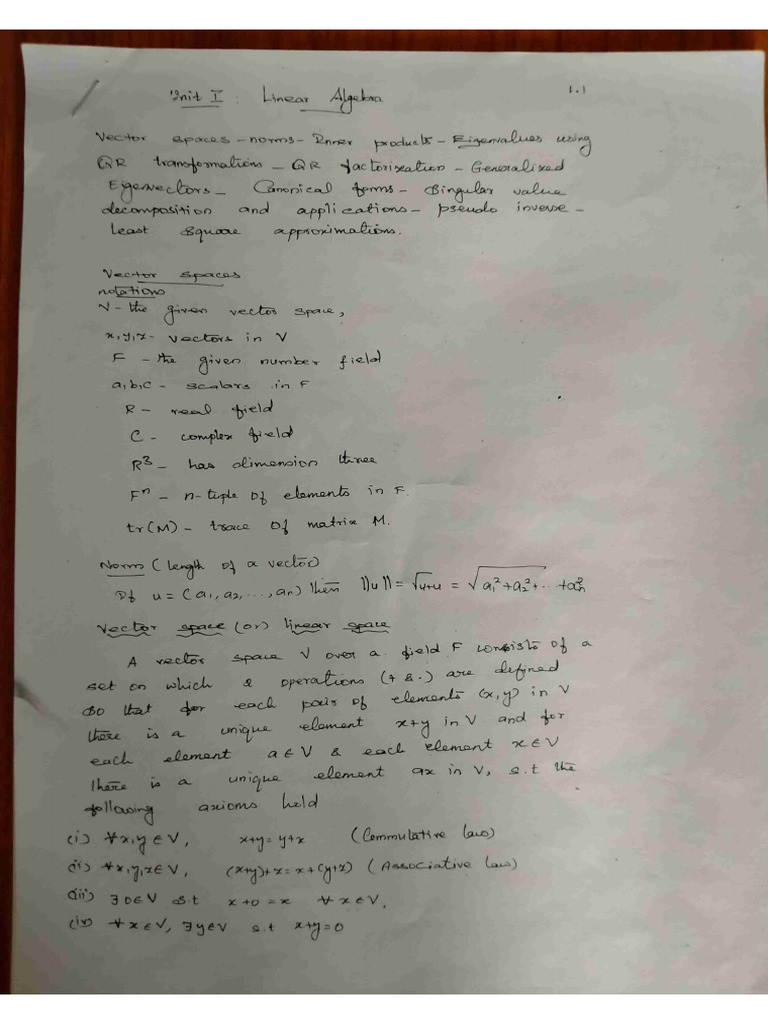 Unit I : Linear Algebra 1.1
Vector spaces - norms - Inner products - Eigenvalues using
QR transformations - QR factorization - Generalized
Eigenvectors - Canonical forms - Singular value
decomposition and applications - pseudo inverse -
least square approximations.
Vector spaces
notations
V - the given vector space,
x,y,z - vectors in V
F - the given number field
a,b,c - scalars in F
R - real field
C - complex field
R³ - has dimension three
Fⁿ - n-tuple of elements in F.
tr(M) - trace of matrix M.
Norms (length of a vector)
If u = (a₁, a₂, ..., aₙ) then ||u|| = √u+u = √a₁²+a₂²+...+aₙ²
Vector space (or) linear space
A vector space V over a field F consists of a
set on which 2 operations (+ & .) are defined
so that for each pair of elements (x,y) in V
there is a unique element x+y in V and for
each element a ∈ V & each element x ∈ V
there is a unique element ax in V, s.t the
following axioms hold
(i) ∀ x,y ∈ V, x+y = y+x (Commutative law)
(ii) ∀ x,y,z ∈ V, (x+y)+z = x+(y+z) (Associative law)
(iii) ∃ 0 ∈ V s.t x+0 = x ∀ x ∈ V,
(iv) ∀ x ∈ V, ∃ y ∈ V s.t x+y = 0